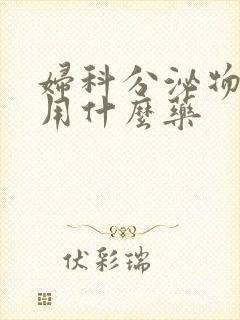 婦科分泌物
用什麼藥
伏彩瑞